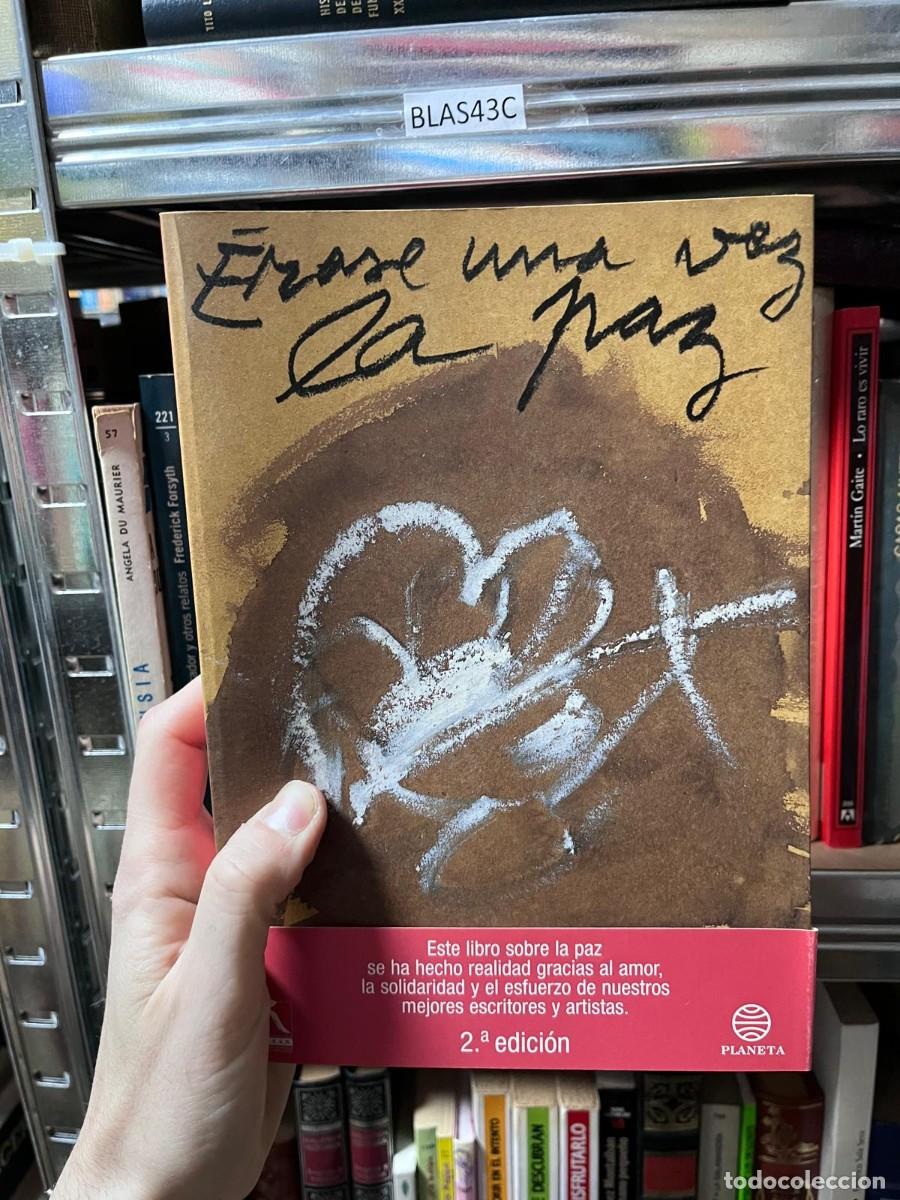 TITO L
BLAS43C
Érase una vez
la paz
57
ANGELA DU MAURIER
221
3
y otros relatos Frederick Forsyth
Martín Gaite • Lo raro es vivir
Este libro sobre la paz
se ha hecho realidad gracias al amor,
la solidaridad y el esfuerzo de nuestros
mejores escritores y artistas.
2.ª edición
PLANETA
EN EL INTENTO
DESCUBRAN
todocoleccion